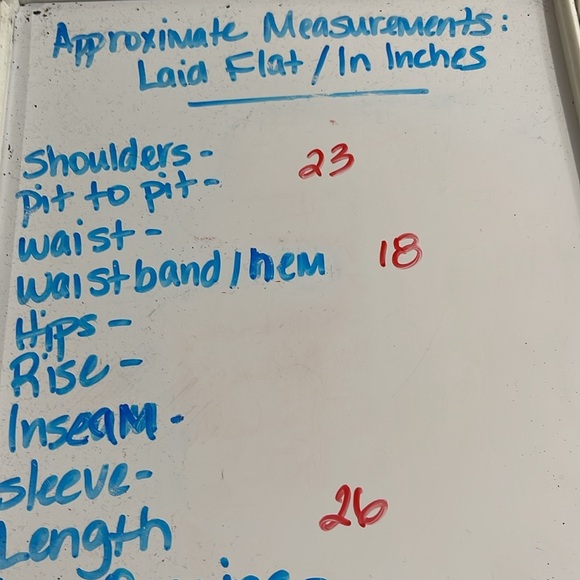 Approximate Measurements:
Laid Flat / In Inches
Shoulders-
pit to pit- 23
waist-
waistband/hem 18
Hips-
Rise-
Inseam.
Sleeve-
Length 26